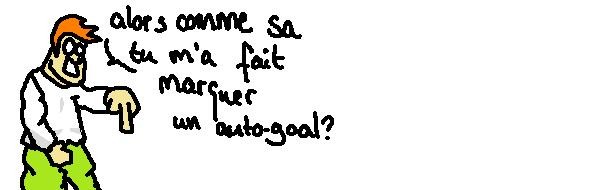 alors comme sa
tu m'a fait
marquer
un auto-goal?